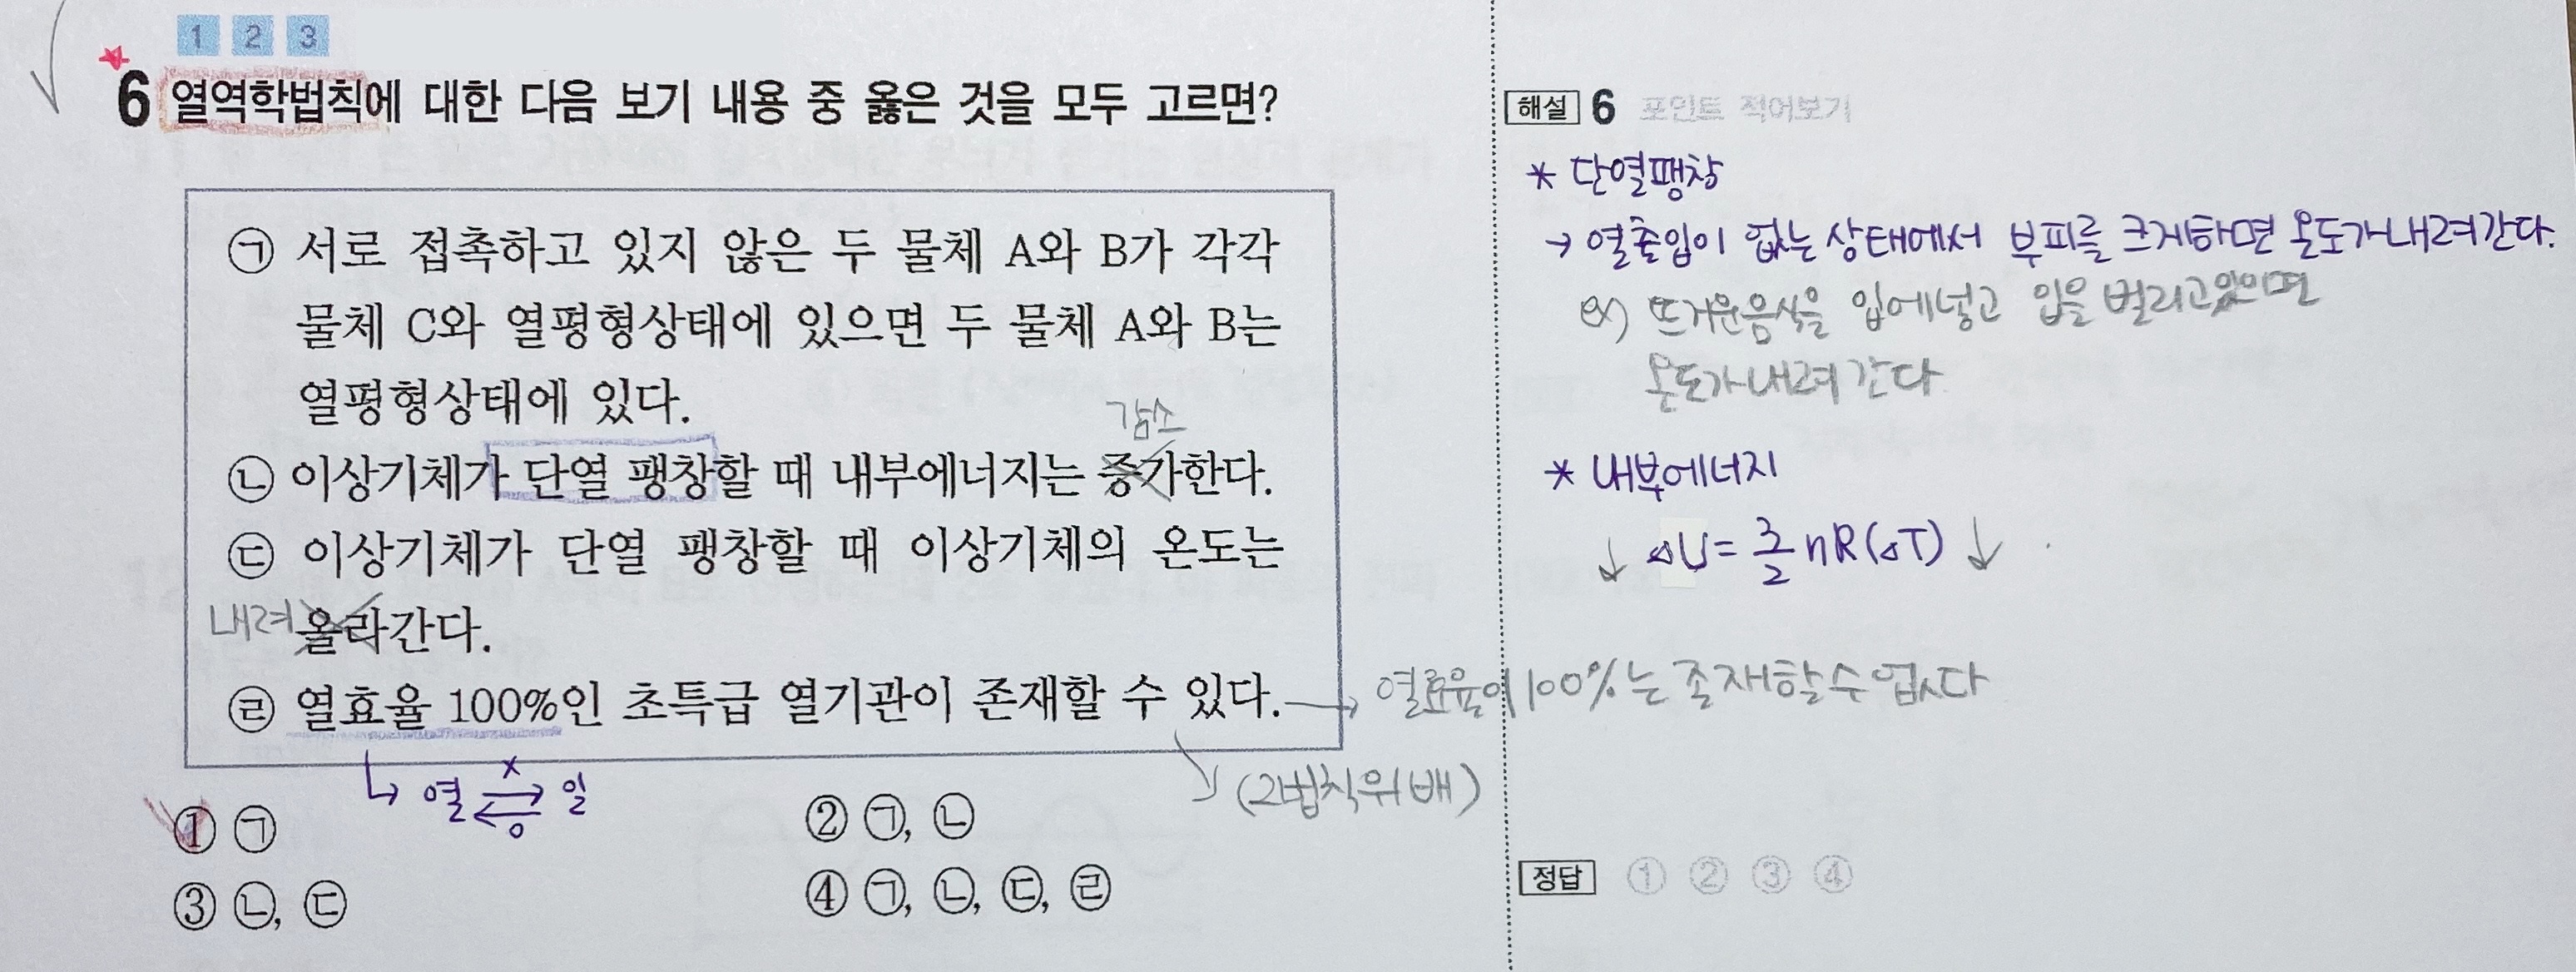 1 2 3
6 열역학법칙에 대한 다음 보기 내용 중 옳은 것을 모두 고르면?
㉠ 서로 접촉하고 있지 않은 두 물체 A와 B가 각각
물체 C와 열평형상태에 있으면 두 물체 A와 B는
열평형상태에 있다.
감소
㉡ 이상기체가 단열 팽창할 때 내부에너지는 증가한다.
㉢ 이상기체가 단열 팽창할 때 이상기체의 온도는
내려 올라간다.
㉣ 열효율 100%인 초특급 열기관이 존재할 수 있다.
→ 열효율이 100%는 존재할 수 없다
↳ 열 x ⇄ o 일
(2법칙위배)
① ㉠
② ㉠, ㉡
③ ㉡, ㉢
④ ㉠, ㉡, ㉢, ㉣
해설 6 포인트 적어보기
* 단열팽창
→ 열출입이 없는 상태에서 부피를 크게하면 온도가 내려간다.
ex) 뜨거운음식을 입에넣고 입을 벌리고있으면
온도가 내려간다
* 내부에너지
↓ ΔU = 3/2 nR(ΔT) ↓
정답 ① ② ③ ④